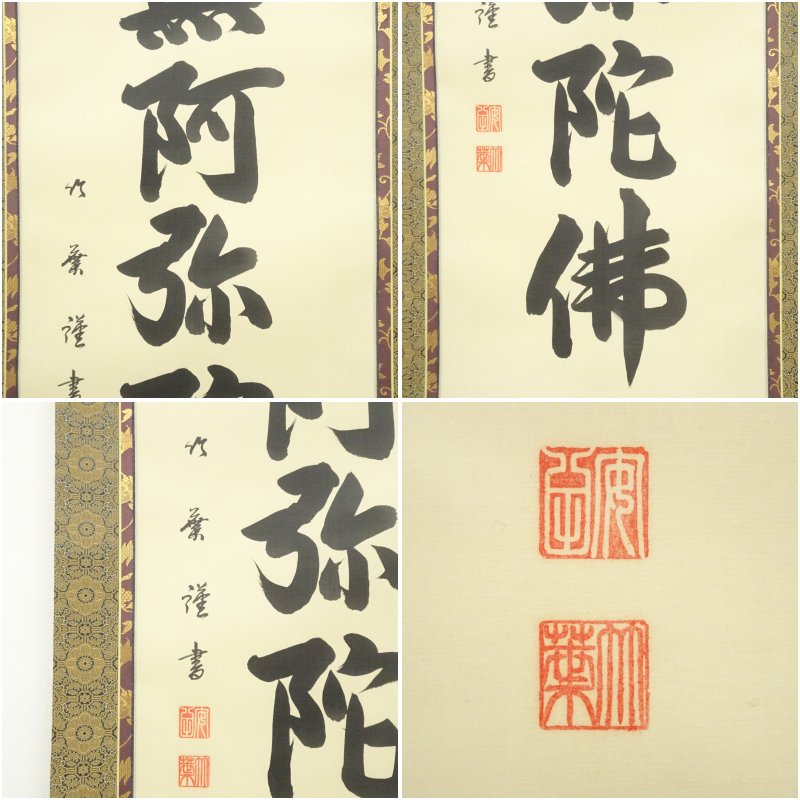 無阿弥陀
竹葉謹書
陀佛
謹書
竹葉
阿弥陀
竹葉謹書
竹葉
安
竹葉